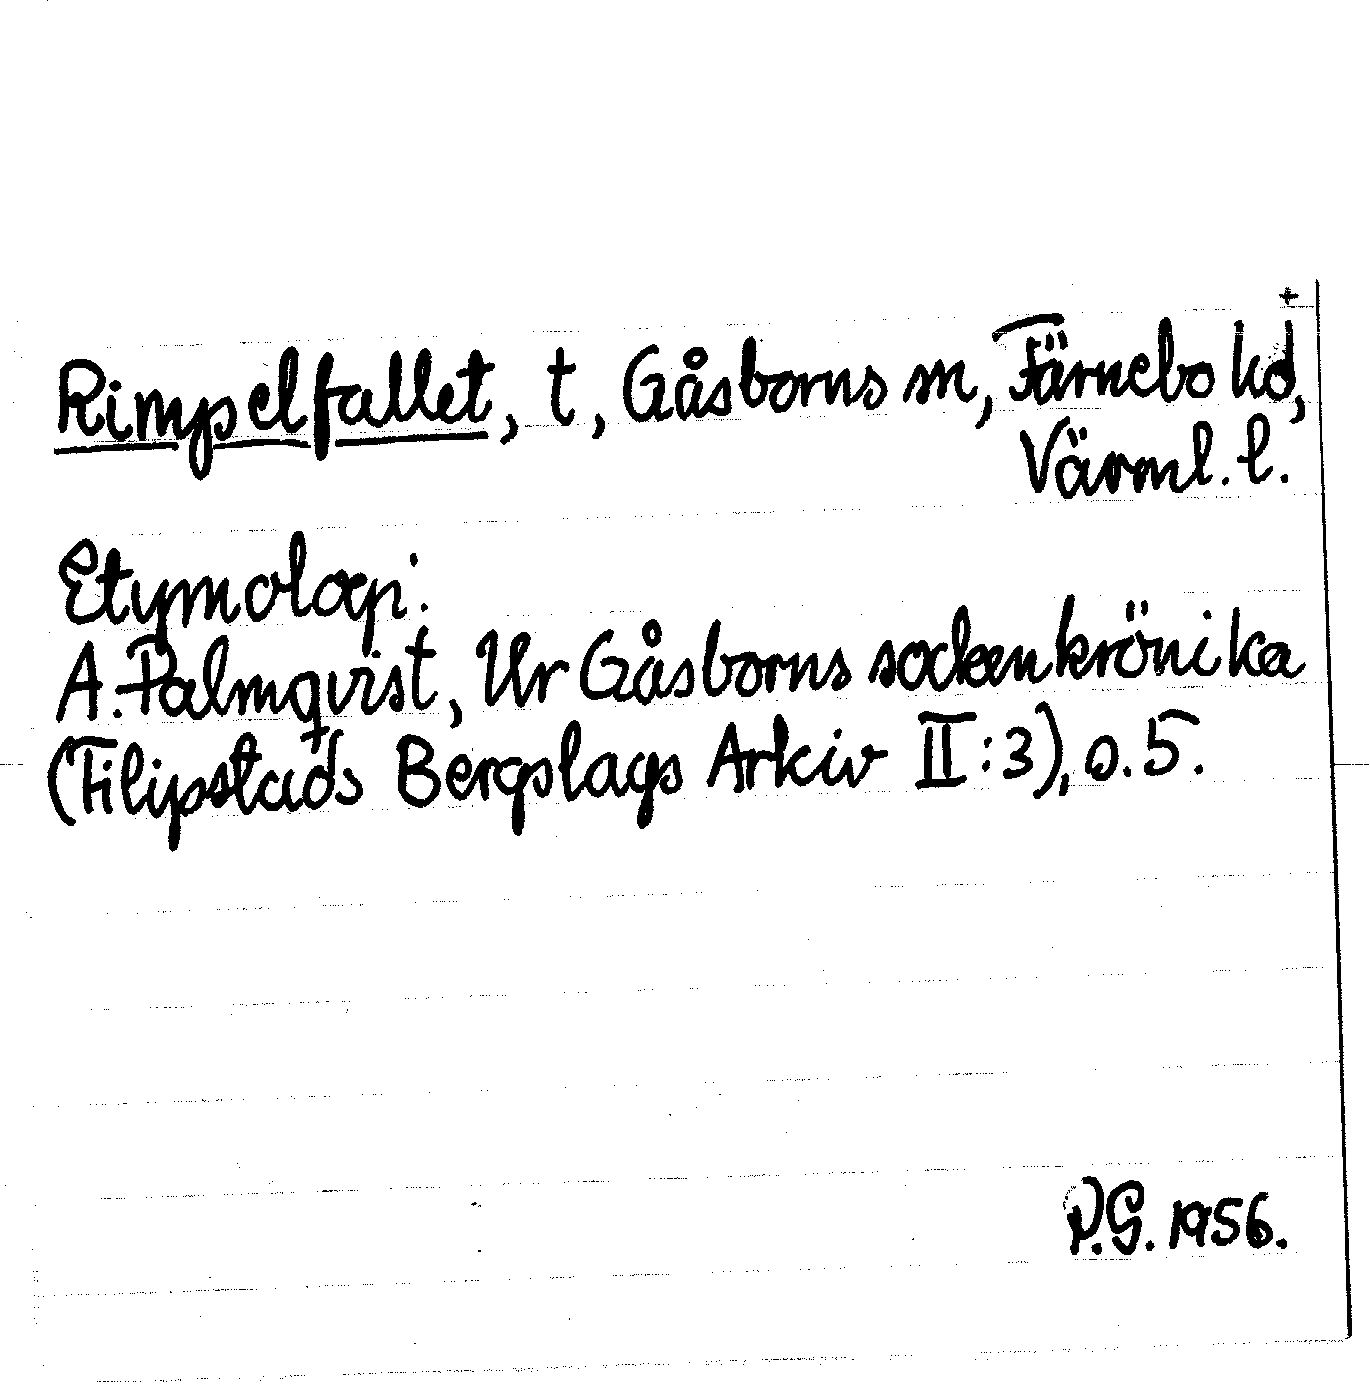 +
Rimpelfallet, t, Gåsborns sn, Färnebo hd,
Värml. l.
Etymologi:
A. Palmqvist, Ur Gåsborns sockenkrönika
(Filipstads Bergslags Arkiv II:3), s. 5.
P.G. 1956.